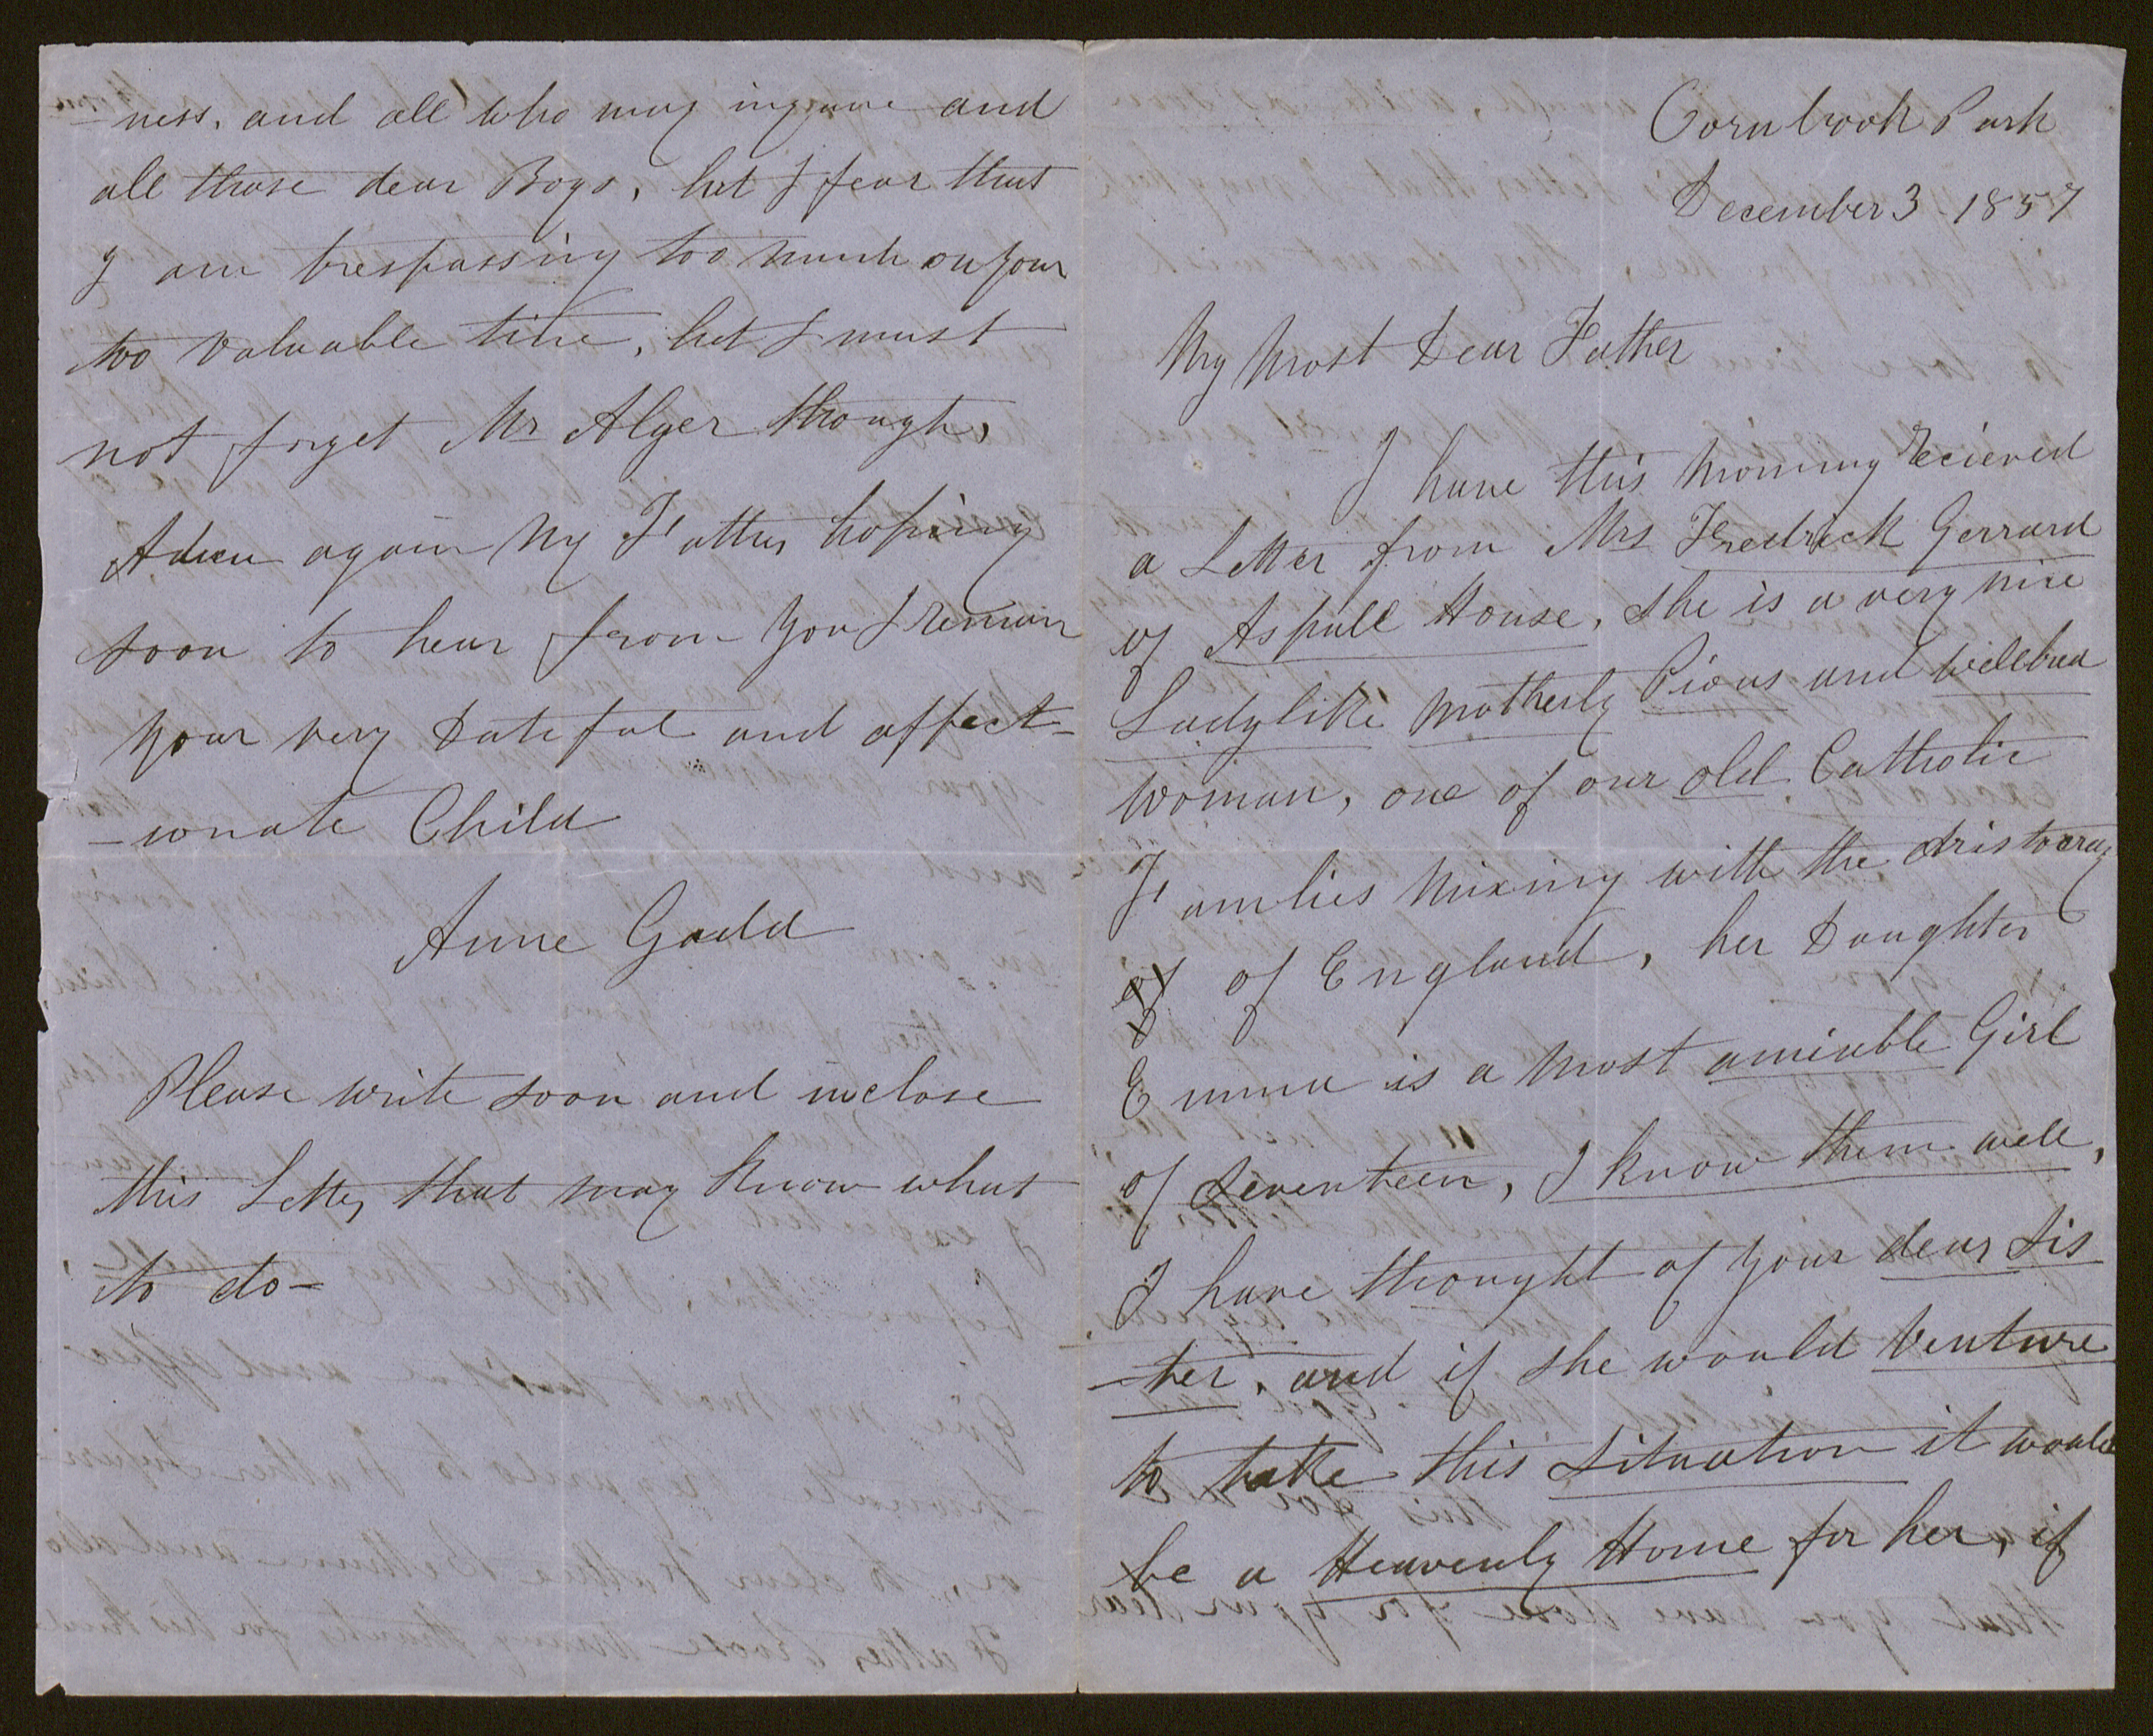 Cornbrook Park
December 3 - 1857
My Most Dear Father
I have this Morning Recieved
a Letter from Mrs Fredrick Gerrard
of Aspull House, She is a very nice
Ladylike Motherly Pious and wellbred
Woman, one of our old Catholic
Families Mixing with the Aristocracy
of of England, her Daughter
Emma is a Most amiable Girl
of Seventeen, I know them well,
I have thought of your dear Sis
-ter, and if she would Venture
to take this Situation it would
be a Heavenly Home for her, if
-ness, and all who may inquire and
all those dear Boys, but I fear that
I am trespassing too much on your
too valuable time, but I must
not forget Mr Alger though,
Adieu again My Father hoping
soon to hear from you I remain
your very Dutiful and affect-
-ionate Child
Anne Gadd
Please write soon and inclose
this Letter, that may know what
to do -